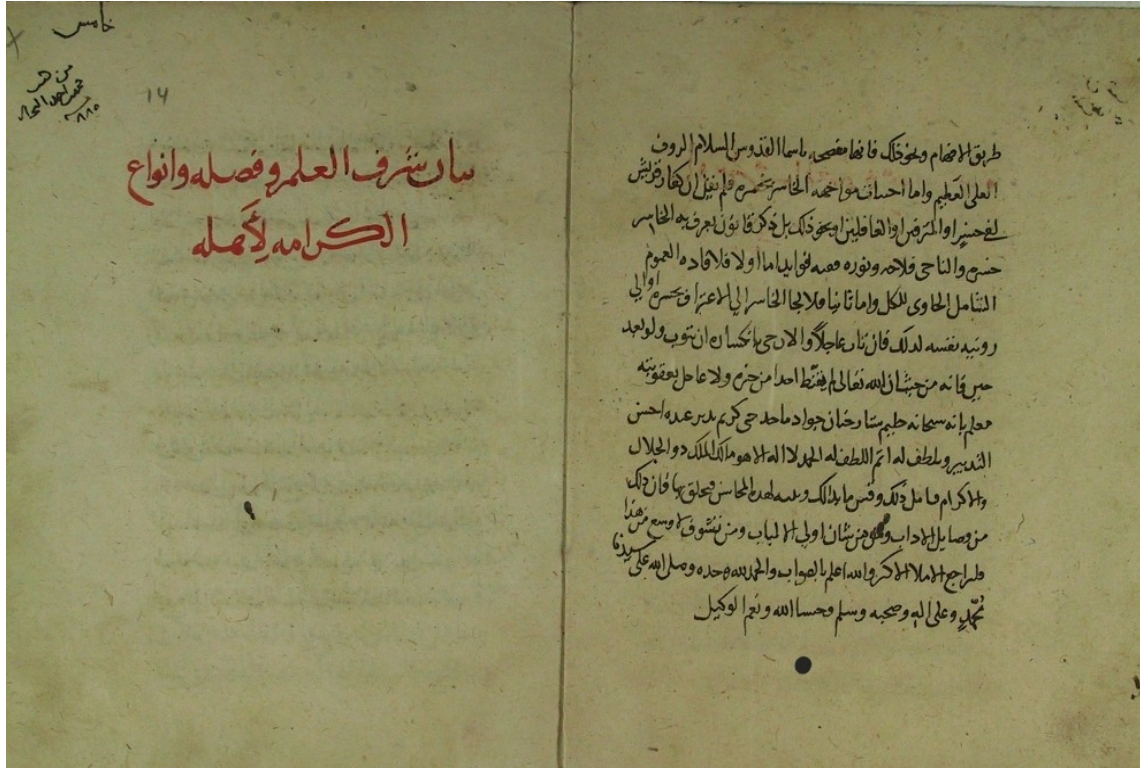 طريق الافهام ونحو ذلك فانها مفصحه باسما القدوس السلام الروف
العلى العظيم واما احسان مواجهه الخاسر فلم يقل ان كفار قريش
لفى خسر او المترفين او الغافلين او نحو ذلك بل ذكر قانون يعرف به الخاسر
خسره والناجى فلاحه ونوره ففيه فوايد اما اولا فلافاده العموم
الشامل الحاوى للكل واما ثانيا فلا الخاسر الى الاعتراف بخسره او الى
نفسه لذلك فان تاب عاجلا والا رجى بانكساره ان يتوب ولو بعد
حين فانه من حيث ان الله تعالى لم يقنط احدا من خيره ولا عاجل بعقوبته
معلم بانه سبحانه حليم ستار حنان جواد ماجد حي كريم يدبر عبده احسن
التدبير ويلطف له اتم اللطف له الحمد لا اله الا هو مالك الملك ذو الجلال
والاكرام ذلك وقس لهذه المحاسن وتخلق بها فان ذلك
من الاداب من شان اولي الالباب ومن تشوف لاوسع من هذا
فليراجع الاملا الاكبر والله اعلم بالصواب والحمد لله وحده وصلى الله على سيدنا
محمد وعلى اله وصحبه وسلم وحسبنا الله ونعم الوكيل
خامس
14
بيان شرف العلم وفضله وانواع
الكرامه لأهله